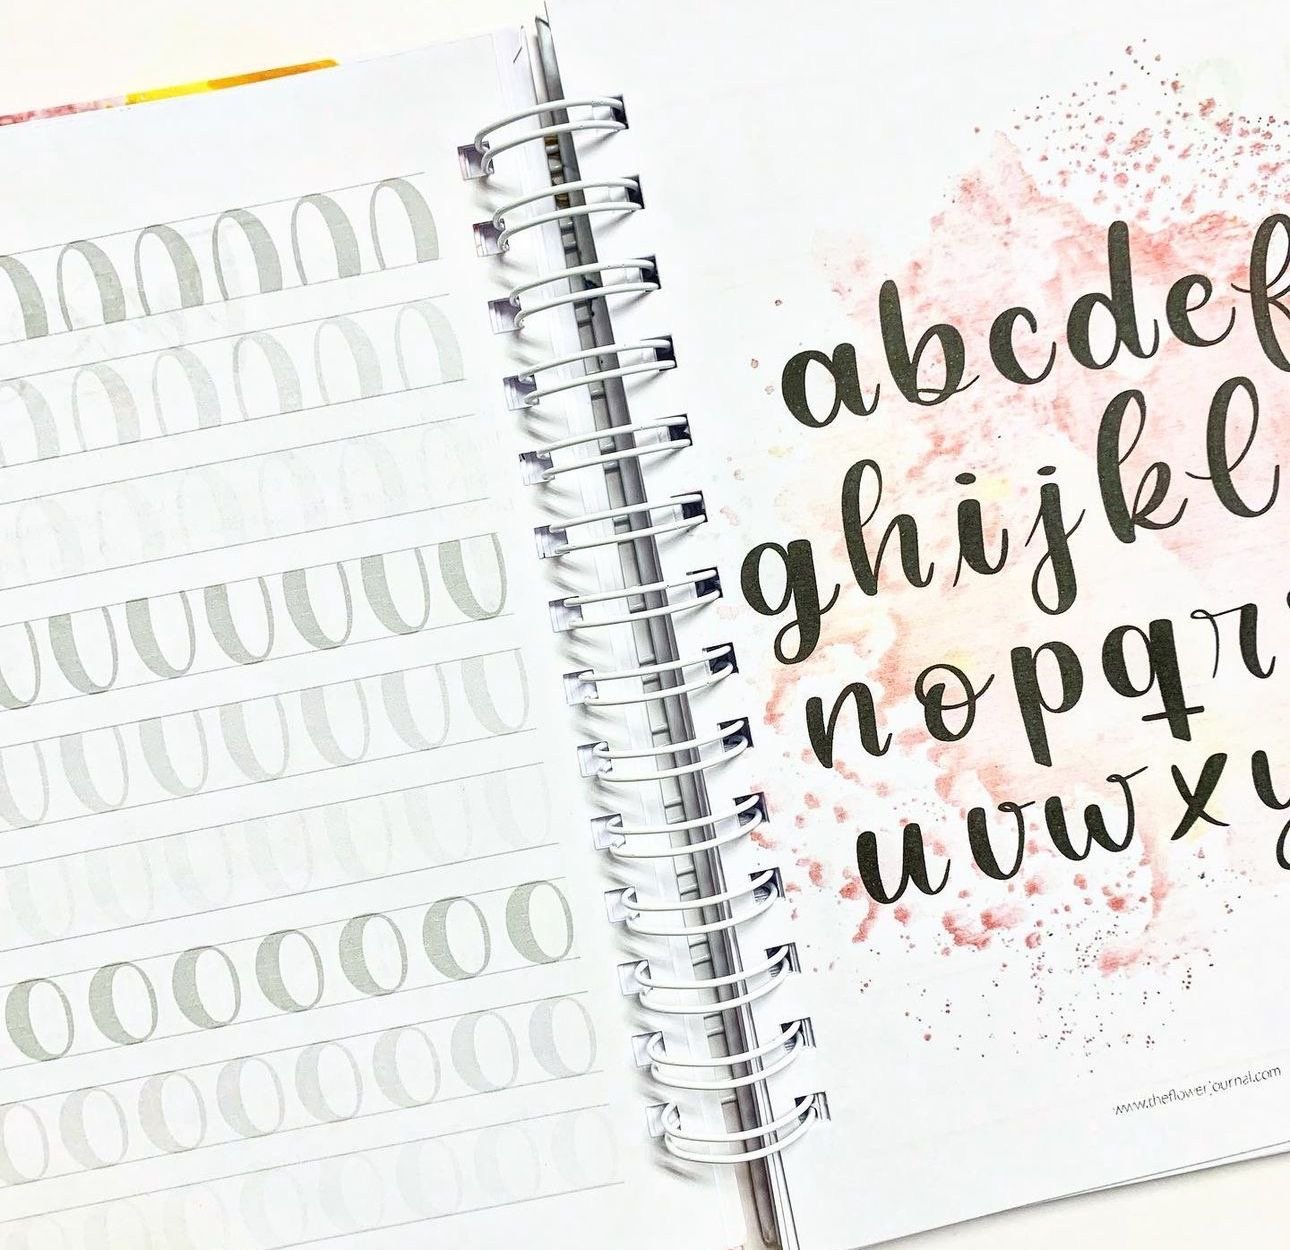 abcdef
ghijkl
nopqr
uvwxy
www.theflowerjournal.com